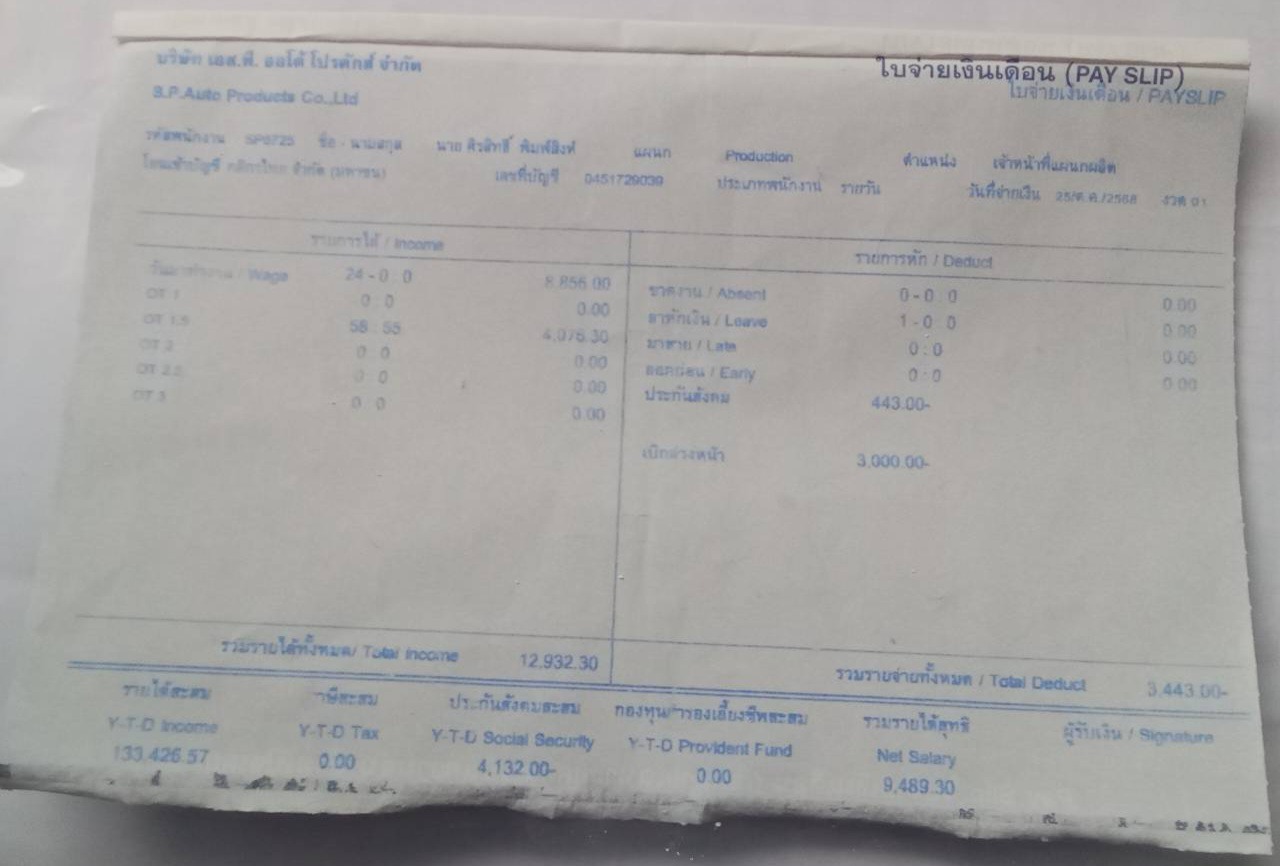 บริษัท เอส.พี. ออโต้ โปรดักส์ จำกัด
ใบจ่ายเงินเดือน (PAY SLIP)
ใบจ่ายเงินเดือน / PAYSLIP
S.P.Auto Products Co.,Ltd
รหัสพนักงาน ชื่อ - นามสกุล นาย พิมพ์สิงห์ แผนก Production ตำแหน่ง เจ้าหน้าที่แผนกผลิต
โอนเข้าบัญชี กสิกรไทย จำกัด (มหาชน) เลขที่บัญชี 0451729039 ประเภทพนักงาน รายวัน วันที่จ่ายเงิน 25/ต.ค./2568 งวด 01
รายการได้ / Income รายการหัก / Deduct
วันมาทำงาน / Wage 24 - 0 : 0 8,856.00 ขาดงาน / Absent 0 - 0 : 0 0.00
OT 1 0 : 0 0.00 ลาหักเงิน / Leave 1 - 0 : 0 0.00
OT 1.5 58 : 55 4,076.30 มาสาย / Late 0 : 0 0.00
OT 2 0 : 0 0.00 ออกก่อน / Early 0 : 0 0.00
OT 2.5 0 : 0 0.00 ประกันสังคม 443.00-
OT 3 0 : 0 0.00
เบิกล่วงหน้า 3,000.00-
รวมรายได้ทั้งหมด/ Total Income 12,932.30 รวมรายจ่ายทั้งหมด / Total Deduct 3,443.00-
รายได้สะสม ภาษีสะสม ประกันสังคมสะสม กองทุนสำรองเลี้ยงชีพสะสม รวมรายได้สุทธิ ผู้รับเงิน / Signature
Y-T-D Income Y-T-D Tax Y-T-D Social Security Y-T-D Provident Fund Net Salary
133,426.57 0.00 4,132.00- 0.00 9,489.30